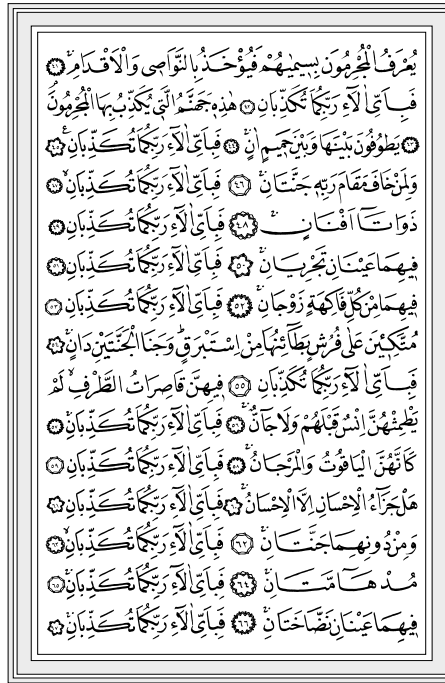 يُعْرَفُ الْمُجْرِمُونَ بِسِيمٰيهُمْ فَيُؤْخَذُ بِالنَّوَاصِى وَالْاَقْدَامِ ۚ ﴿٤١﴾
فَبِاَىِّ اٰلَآءِ رَبِّكُمَا تُكَذِّبَانِ ﴿٤٢﴾ هٰذِهٖ جَهَنَّمُ الَّتٖى يُكَذِّبُ بِهَا الْمُجْرِمُونَ ۘ
﴿٤٣﴾ يَطُوفُونَ بَيْنَهَا وَبَيْنَ حَمٖيمٍ اٰنٍ ۚ ﴿٤٤﴾ فَبِاَىِّ اٰلَآءِ رَبِّكُمَا تُكَذِّبَانِ ۟ ﴿٤٥﴾
وَلِمَنْ خَافَ مَقَامَ رَبِّهٖ جَنَّتَانِ ۚ ﴿٤٦﴾ فَبِاَىِّ اٰلَآءِ رَبِّكُمَا تُكَذِّبَانِ ۙ ﴿٤٧﴾
ذَوَاتَآ اَفْنَانٍ ۚ ﴿٤٨﴾ فَبِاَىِّ اٰلَآءِ رَبِّكُمَا تُكَذِّبَانِ ﴿٤٩﴾
فٖيهِمَا عَيْنَانِ تَجْرِيَانِ ۚ ﴿٥٠﴾ فَبِاَىِّ اٰلَآءِ رَبِّكُمَا تُكَذِّبَانِ ﴿٥١﴾
فٖيهِمَا مِنْ كُلِّ فَاكِهَةٍ زَوْجَانِ ۚ ﴿٥٢﴾ فَبِاَىِّ اٰلَآءِ رَبِّكُمَا تُكَذِّبَانِ ﴿٥٣﴾
مُتَّكِـٖٔينَ عَلٰى فُرُشٍ بَطَٓائِنُهَا مِنْ اِسْتَبْرَقٍ ۜ وَجَنَا الْجَنَّتَيْنِ دَانٍ ۚ ﴿٥٤﴾
فَبِاَىِّ اٰلَآءِ رَبِّكُمَا تُكَذِّبَانِ ﴿٥٥﴾ فٖيهِنَّ قَاصِرَاتُ الطَّرْفِ ۙ لَمْ
يَطْمِثْهُنَّ اِنْسٌ قَبْلَهُمْ وَلَا جَٓانٌّ ۚ ﴿٥٦﴾ فَبِاَىِّ اٰلَآءِ رَبِّكُمَا تُكَذِّبَانِ ۚ ﴿٥٧﴾
كَاَنَّهُنَّ الْيَاقُوتُ وَالْمَرْجَانُ ۚ ﴿٥٨﴾ فَبِاَىِّ اٰلَآءِ رَبِّكُمَا تُكَذِّبَانِ ﴿٥٩﴾
هَلْ جَزَٓاءُ الْاِحْسَانِ اِلَّا الْاِحْسَانُ ۚ ﴿٦٠﴾ فَبِاَىِّ اٰلَآءِ رَبِّكُمَا تُكَذِّبَانِ ﴿٦١﴾
وَمِنْ دُونِهِمَا جَنَّتَانِ ۚ ﴿٦٢﴾ فَبِاَىِّ اٰلَآءِ رَبِّكُمَا تُكَذِّبَانِ ۙ ﴿٦٣﴾
مُدْهَٓامَّتَانِ ۚ ﴿٦٤﴾ فَبِاَىِّ اٰلَآءِ رَبِّكُمَا تُكَذِّبَانِ ۚ ﴿٦٥﴾
فٖيهِمَا عَيْنَانِ نَضَّاخَتَانِ ۚ ﴿٦٦﴾ فَبِاَىِّ اٰلَآءِ رَبِّكُمَا تُكَذِّبَانِ ۚ ﴿٦٧﴾